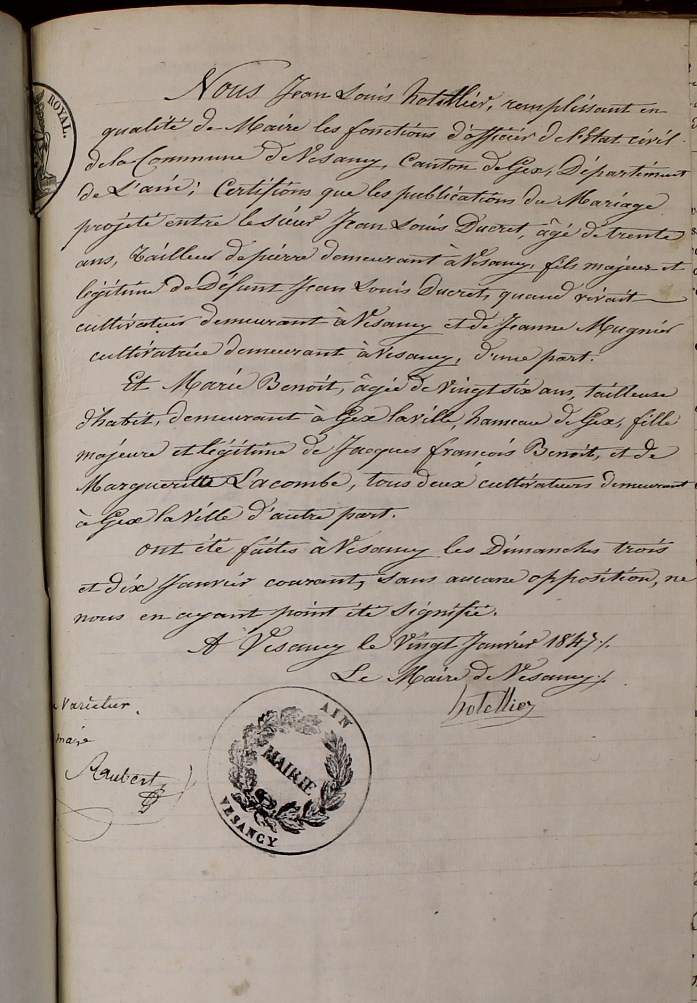 ROYAL.
Nous Jean Louis hotellier, remplissant en
qualité de Maire les fonctions d'officier de l'Etat civil
de la Commune de Vesancy, Canton de Gex, Département
de L'ain; Certifions que les publications du Mariage
projeté entre le sieur Jean Louis Ducret, âgé de trente
ans, Tailleur de pierre demeurant à Vesancy, fils majeur et
légitime de Défunt Jean Louis Ducret, quand vivait
cultivateur demeurant à Vesancy et de Jeanne Mugnier
cultivatrice demeurant à Vesancy, d'une part.
Et Marie Benoit, âgée de vingt six ans, tailleuse
d'habit, demeurant à Gex la ville, hameau de Gex, fille
majeure et légitime de Jacques françois Benoit, et de
Margueritte Lacombe, tous deux cultivateurs demeurant
à Gex la Ville d'autre part.
ont été faites à Vesancy les Dimanches trois
et dix Janvier courant, sans aucune opposition, ne
nous en ayant point été Signifié.
A Vesancy le Vingt Janvier 1847.
Le Maire de Vesancy.
hotellier
AIN
MAIRIE
VESANCY